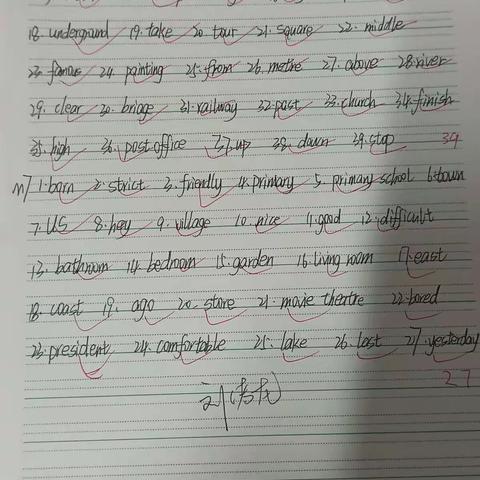 18. underground 19. take 20 tour 21. square 22. middle
23. famous 24. painting 25. from 26. metre 27. above 28. river
29. clear 30. bridge 31. railway 32. past 33. church 34. finish
35. high 36. post office 37. up 38. down 39. stop 39
M7 1. born 2. strict 3. friendly 4. primary 5. primary school 6. town
7. US 8. hey 9. village 10. nice 11. good 12. difficult
13. bathroom 14. bedroom 15. garden 16. living room 17. east
18. coast 19. ago 20. store 21. movie theatre 22. bored
23. president 24. comfortable 25. lake 26. last 27. yesterday
27